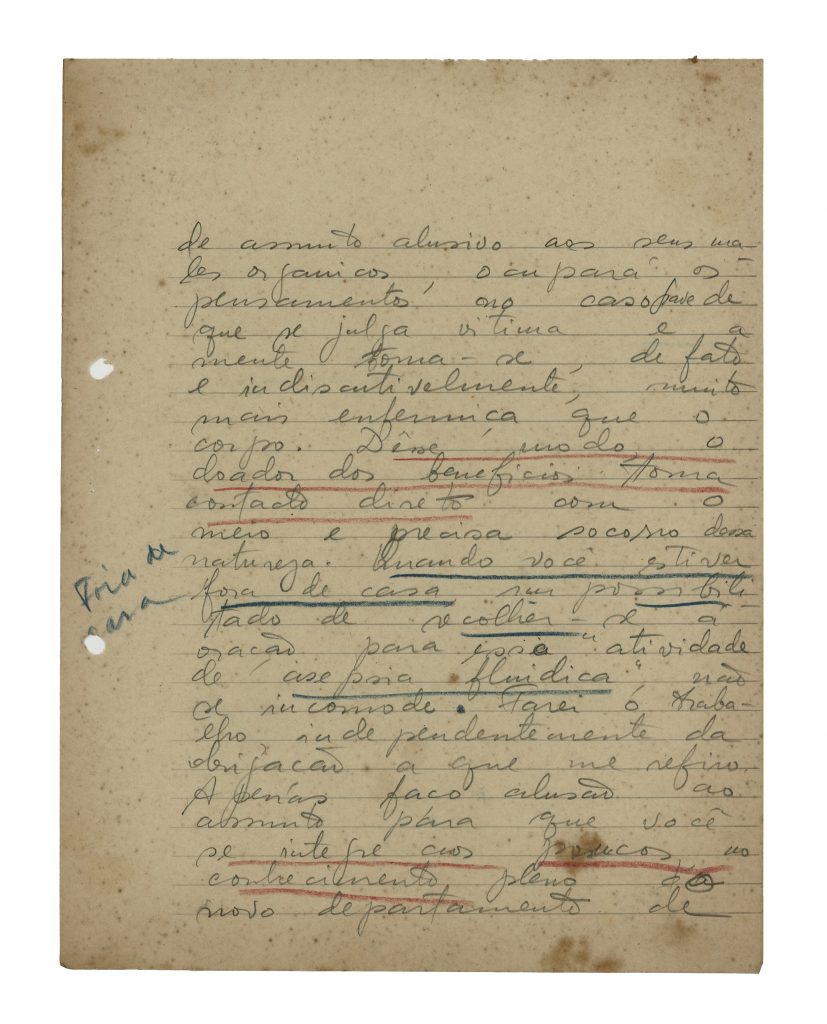 de assunto alusivo aos seus ma-
les organicos, ocupará os
pensamentos no caso grave de
que se julga vitima e a
mente torna-se, de fato
e indiscutivelmente, muito
mais enfermiça que o
corpo. Dêsse modo, o
doador dos beneficios toma
contacto direto com o
meio e precisa socorro dessa
natureza. Quando você estiver
fora de casa sem possibili
tado de recolher-se á
oração para essa "atividade
de asepsia fluidica", não
se incomode. Farei o traba-
lho independentemente da
obrigação a que me refiro.
Apenas faço alusão ao
assunto para que você
se integre aos poucos, no
conhecimento pleno do
novo departamento de
Fora de
casa